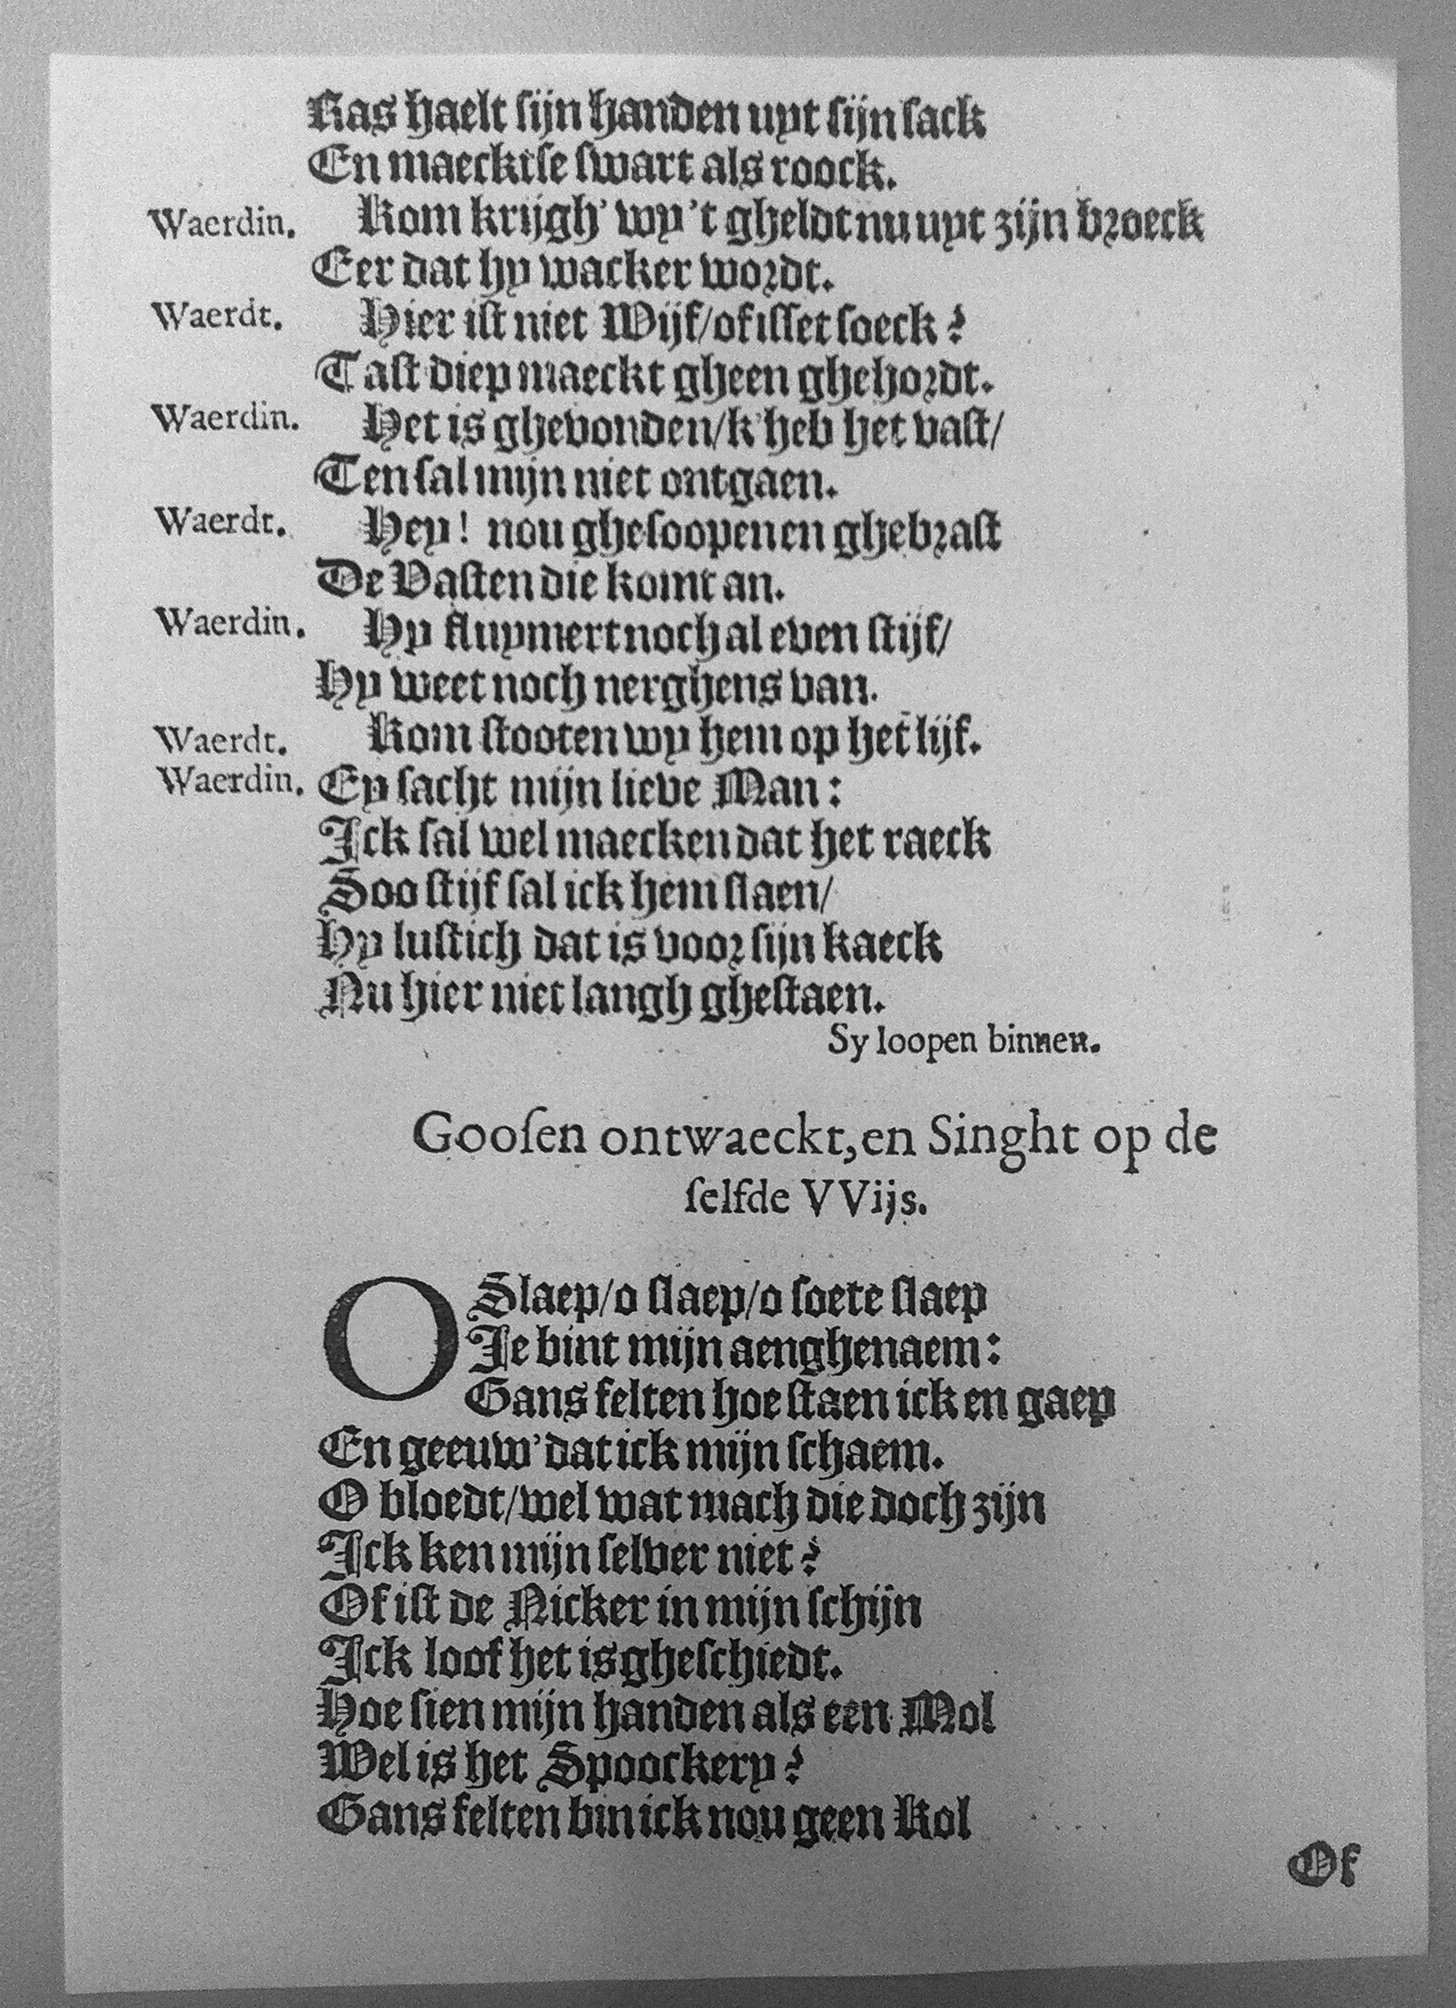 Ras haelt ſijn handen uyt ſijn ſack
En maecktſe ſwart als roock.
Waerdin. Kom krijgh' wy 't gheldt nu uyt zijn broeck
Eer dat hy wacker wordt.
Waerdt. Hier iſt niet Wijf/of iſſet ſoeck?
Taſt diep maeckt gheen ghehordt.
Waerdin. Het is ghevonden/k'heb het vaſt/
Ten ſal mijn niet ontgaen.
Waerdt. Hey! nou gheſoopen en ghebraſt
De Vaſten die komt an.
Waerdin. Hy ſluymert noch al even ſtijf/
Hy weet noch nerghens van.
Waerdt. Kom ſtooten wy hem op het lijf.
Waerdin. Ey ſacht mijn lieve Man:
Ick ſal wel maecken dat het raeck
Soo ſtijf ſal ick hem ſlaen/
Hy luſtich dat is voor ſijn kaeck
Nu hier niet langh gheſtaen.
Sy loopen binnen.
Gooſen ontwaeckt, en Singht op de
ſelfde VVijs.
O Slaep/o ſlaep/o ſoete ſlaep
Je bint mijn aenghenaem:
Gans felten hoe ſtaen ick en gaep
En geeuw' dat ick mijn ſchaem.
O bloedt/wel wat mach die doch zijn
Ick ken mijn ſelver niet?
Of iſt de Nicker in mijn ſchijn
Ick loof het is gheſchiedt.
Hoe ſien mijn handen als een Mol
Wel is het Spoockery?
Gans felten bin ick nou geen Kol
Of